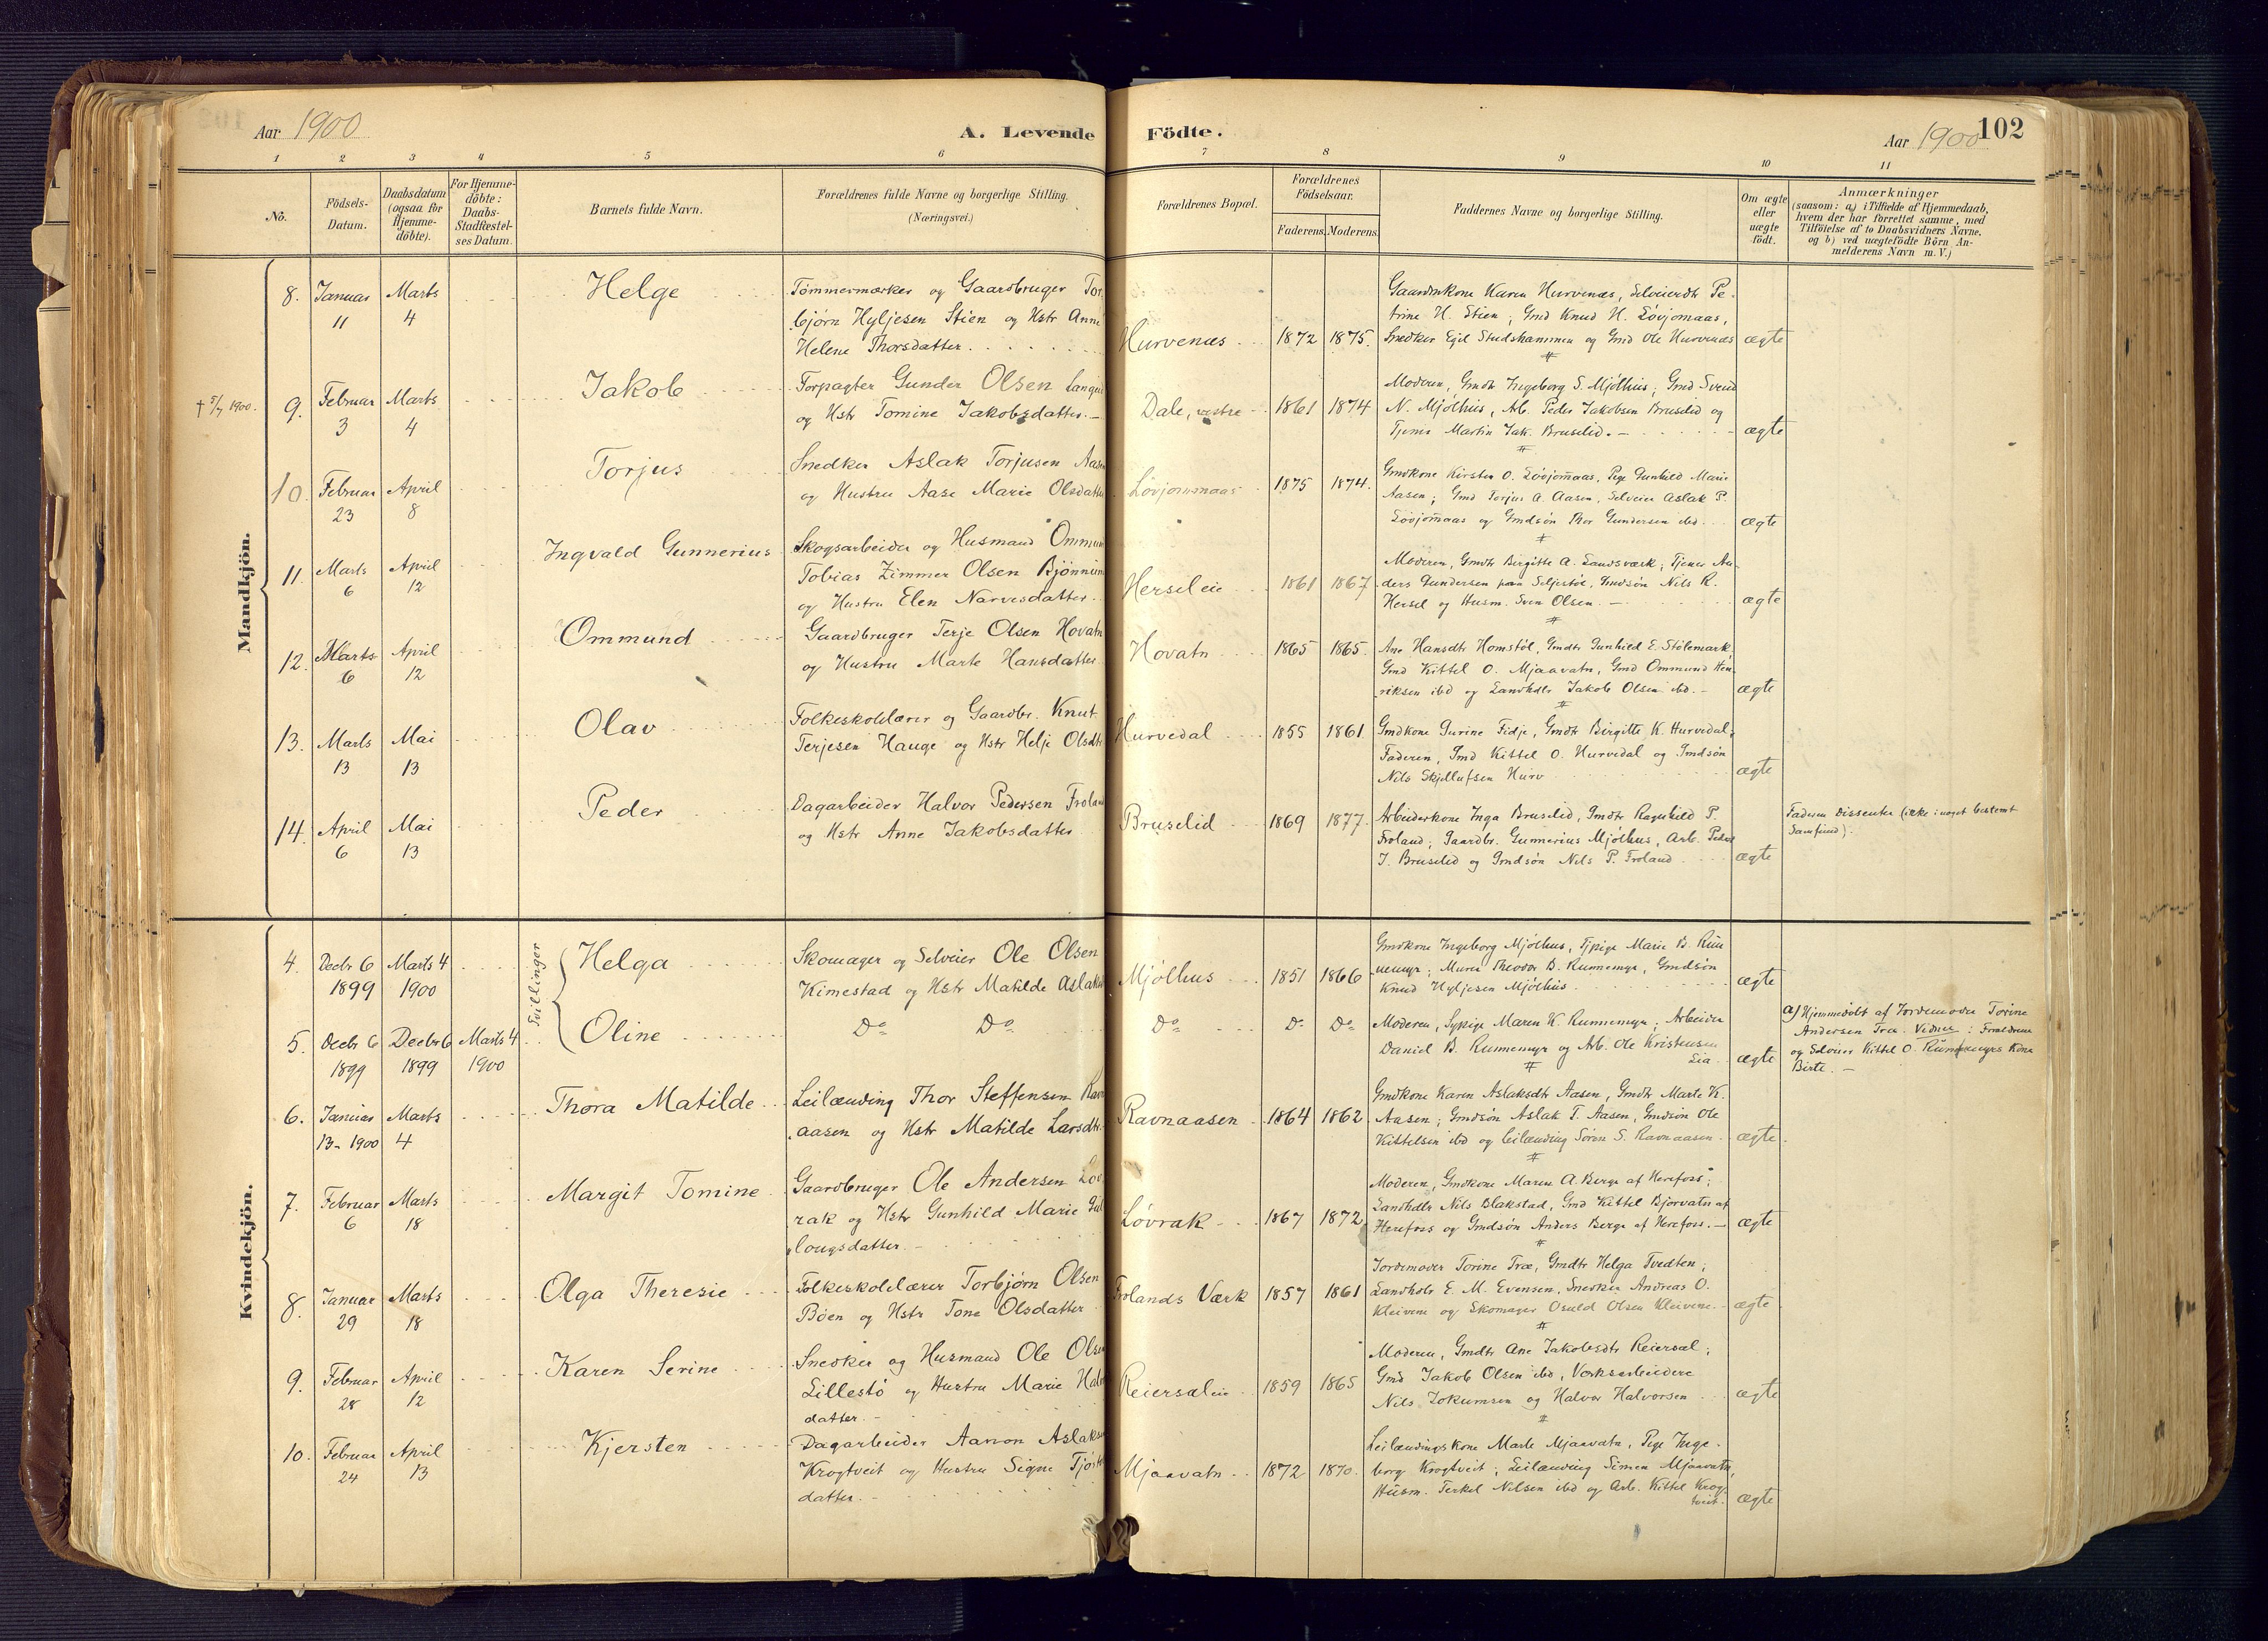 Aar 1900
A. Levende
Födte.
Aar 1900
102
1 2 3 4 5 6 7 8 9 10 11
No.
Födsels-
Datum.
Daabsdatum
(ogsaa for
Hjemme-
döbte).
For Hjemme-
döbte:
Daabs-
Stadfæstel-
ses Datum.
Barnets fulde Navn.
Forældrenes fulde Navne og borgerlige Stilling.
(Næringsvei.)
Forældrenes Bopæl.
Forældrenes
Födselsaar.
Faderens.
Moderens.
Faddernes Navne og borgerlige Stilling.
Om ægte
eller
uægte
födt.
Anmærkninger
(saasom: a) i Tilfælde af Hjemmedaab,
hvem der har forrettet samme, med
Tilföielse af to Daabsvidners Navne,
og b) ved uægtefödte Börn An-
melderens Navn m. V.)
Mandkjön.
8. Januar
11
Marts
4
Helge
Tømmermærker og Gaardbruger Tor-
bjørn Hyljesen Stien og Hstr Anne
Helene Thorsdatter.
Hurvenæs
1872
1875.
Gaardmkone Karen Hurvenæs, Selveierdtr Pe-
trine H. Stien; Gmd Knud H. Løvjomaas,
Snedker Egil Studshammen og Gmd Ole Hurvenæs
ægte
† 5/7 1900.
9. Februar
3
Marts
4
Jakob
Forpagter Gunder Olsen
og Hstr Tomine Jakobsdatter.
Dale, vestre
1861
1874
Moderen, Gmdtr Ingeborg S. Mjölhus; Gmd Svend
N. Mjölhus, Arb. Peder Jakobsen Bruselid og
Tjener Martin Jak. Bruselid.
ægte
10. Februar
23
April
8
Torjus
Snedker Aslak Torjusen Aasen
og Hustru Aase Marie Olsdatter
Løvjommaas
1875
1874.
Gmdkone Kirsten O. Løvjomaas, Pige Gunhild Marie
Aasen; Gmd Torjus A. Aasen, Selveier Aslak P.
Løvjomaas og Gmdsøn Thor Gundersen ibd.
ægte
11. Marts
6
April
12
Ingvald Gunnerius
Skogsarbeider og Husmand Ommun
Tobias Zimmer Olsen Bjönnum
og Hustru Elen Narvesdatter.
Herseleie
1861
1867
Moderen, Gmdtr Birgitte A. Landsværk; Tjener An-
ders Gundersen paa Seljestöl, Gmdsön Nils R.
Hersel og Husm. Sven Olsen.
ægte
12. Marts
6
April
12
Ommund
Gaardbruger Terje Olsen Hovatn
og Hustru Marte Hansdatter
Hovatn
1865
1865.
Ane Hansdtr Homstøl, Gmdtr Gunhild E. Stölemark,
Gmd Kittel O. Mjaavatn, Gmd Ommund Hen-
riksen ibd og Landhdlr Jakob Olsen ibd.
ægte
13. Marts
13
Mai
13
Olav
Folkeskolelærer og Gaardbr. Knut
Terjesen Hauge og Hstr Helje Olsdtr
Hurvedal
1855
1861
Gmdkone Gurine Fidje, Gmdtr Birgitte K. Hurvedal,
Faderen, Gmd Kittel O. Hurvedal og Gmdsøn
Nils Skjellufsen Hurv
ægte
14. April
6
Mai
13
Peder
Dagarbeider Halvor Pedersen Froland
og Hstr Anne Jakobsdatter
Bruselid
1869
1877.
Arbeiderkone Inga Bruselid, Gmdtr Ragnhild P.
Froland; Gaardbr. Gunnerius Mjölhus, Arb. Peder
J. Bruselid og Gmdsön Nils P. Froland
ægte
Faderen Dissenter (ikke i noget bestemt
Samfund).
Kvindekjön.
4. Decbr 6
1899
Marts 4
1900
Tvillinger
Helga
Skomager og Selveier Ole Olsen
Kimestad og Hstr Matilde Aslaksd
Mjölhus
1851
1866
Gmdkone Ingeborg Mjölhus, Tjpige Marie B. Run-
nemyr; Murer Theodor B. Runnemyr, Gmdsön
Knud Hyljesen Mjölhus
ægte
5. Decbr 6
1899
Decbr 6
1899
Marts 4
1900
Oline
Do Do
Do
Do
Do
Moderen, Sypige Maren K. Runnemyr; Arbeider
Daniel B. Runnemyr og Arb. Ole Kristensen
Lia
ægte
a) Hjemmedøbt af Jordemoder Torine
Andersen Træ. Vidner: Forældrene
og Selveier Kittel O. Runnemyrs Kone
Birte.
6. Januar
13 - 1900
Marts
4
Thora Matilde
Leilænding Thor Steffensen Ravn
aasen og Hstr Matilde Larsdtr
Ravnaasen
1864
1862
Gmdkone Karen Aslaksdtr Aasen, Gmdtr Marte K.
Aasen; Gmdsön Aslak T. Aasen, Gmdsön Ole
Kittelsen ibd og Leilænding Sören S. Ravnaasen
ægte
7. Februar
6
Marts
18
Margit Tomine
Gaardbruger Ole Andersen Löv
rak og Hstr Gunhild Marie Gul
lougsdatter.
Løvrak
1867
1872
Moderen, Gmdkone Maren A. Berge af Herefoss;
Landhdlr Nils Blakstad, Gmd Kittel Bjorvatn af
Herefoss og Gmdsön Anders Berge af Herefoss.
ægte
8. Januar
29
Marts
18
Olga Theresie
Folkeskolelærer Torbjørn Olsen
Böen og Hstr Tone Olsdatter
Frolands Værk
1857
1861
Jordemoder Torine Træ, Gmdtr Helga Tvedten;
Landhdlr E. M. Evensen, Snedker Andreas O.
Kleivene og Skomager Osuld Olsen Kleivene.
ægte
9. Februar
28
April
12
Karen Serine
Snedker og Husmand Ole Olsen
Lillestö og Hustru Marie Halv
datter.
Reiersøleie
1859
1865
Moderen, Gmdtr Ane Jakobsdtr Reiersøl;
Gmd Jakob Olsen ibd, Verksarbeidere
Nils Jokumsen og Halvor Halvorsen
ægte
10. Februar
24
April
13
Kjersten
Dagarbeider Aanon Aslaksen
Krogtveit og Hustru Signe Tjöst
datter.
Mjaavatn
1872
1870.
Leilændingskone Marte Mjaavatn, Pige Inge-
borg Krogtveit; Leilænding Simen Mjaavatn,
Husm. Terkel Nilsen ibd og Arb. Kittel Krog-
tveit.
ægte